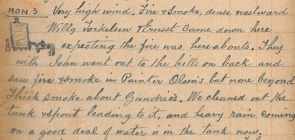 MON 3 Very high wind. Fire & Smoke, dense westward
Willy Torkelsen & Ernest came down here
expecting the fire was here abouts. They
with John went out to the hills on back and
saw fire & smoke in Painter Olson's but none beyond
thick smoke about Gundrie's. We cleaned out the
tank & spout leading to it, and heavy rain coming
on a good deal of water is in the tank now.